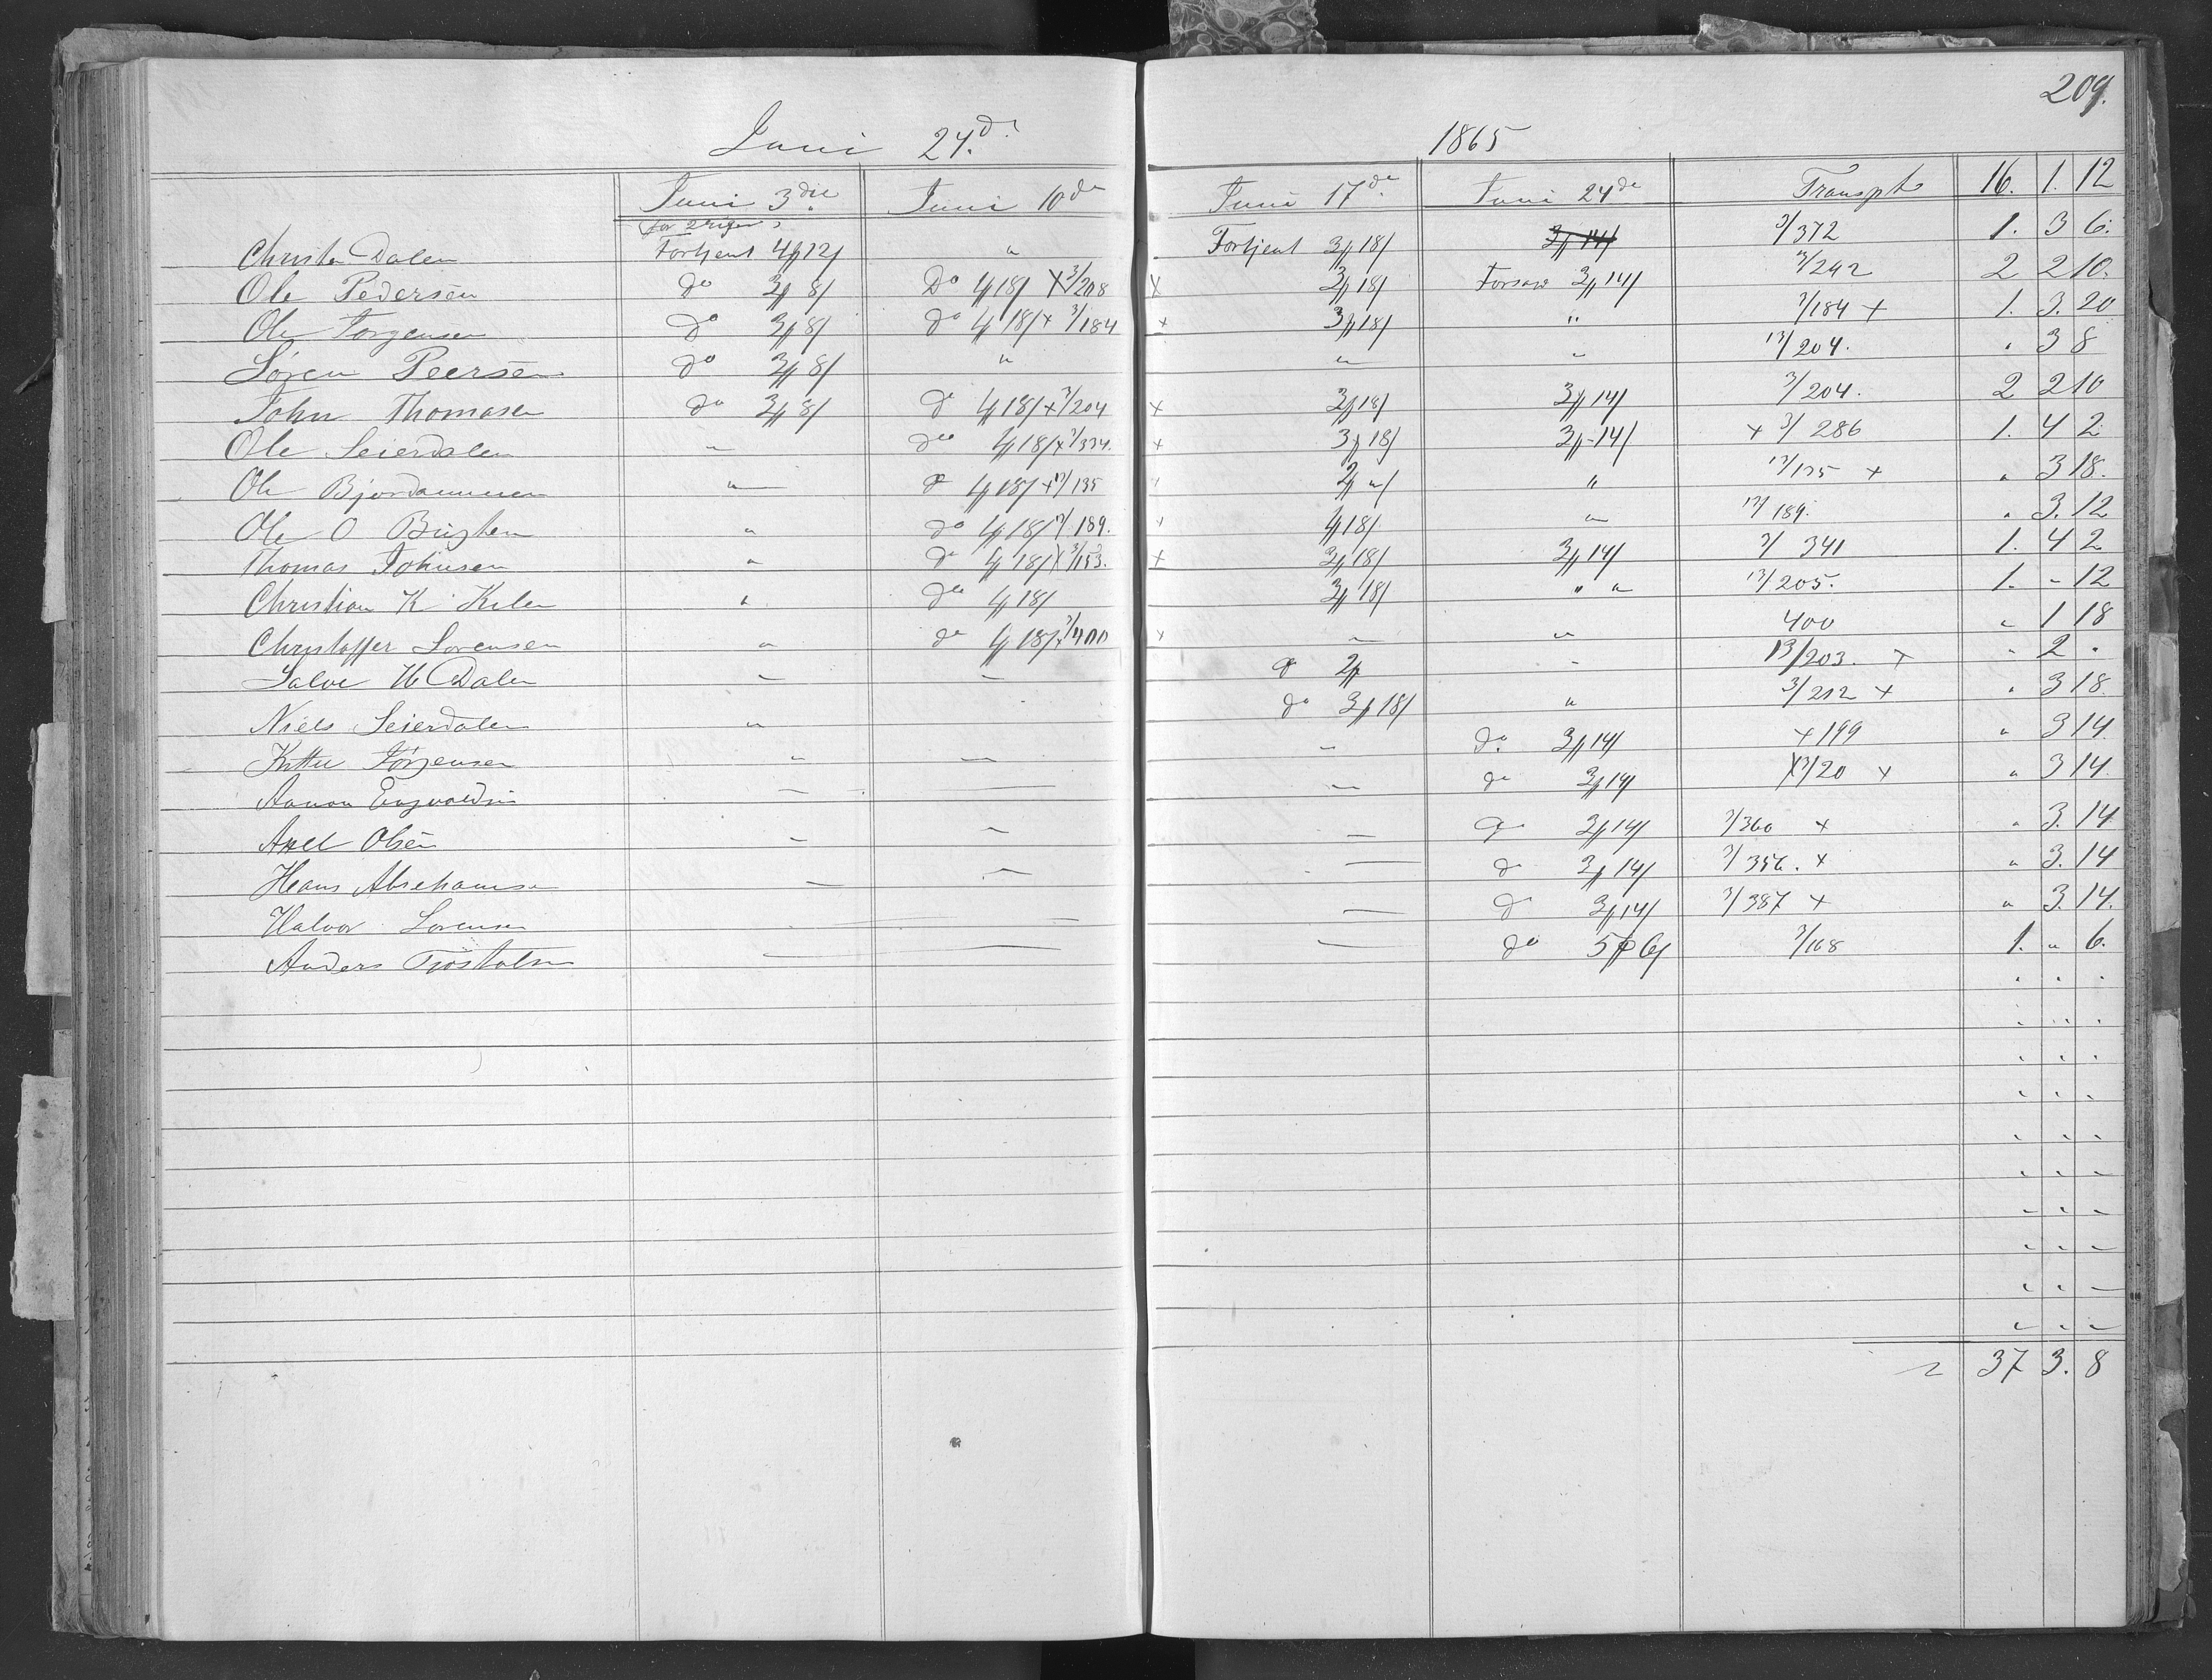 209.
Juni 24.d 1865
Juni 3die Juni 10de Juni 17de Juni 24de Transpt 16. 1. 12
for 2 riger
Christen Dalen Fortjent 4 12 " Fortjent 3 18 3 14 3/372 1. 3 6.
Ole Pedersen do 3 8 Do 4 18 x 3/208 x 3 18 3 14 3/242 2 2 10.
Ole Jorgensen do 3 8 do 4 18 x 3/184 x 3 18 " 3/184 x 1. 3. 20
Søren Peersen do 3 8 " " " 13/204. " 3 8
John Thomasen do 3 8 do 4 18 x 3/204 x 3 18 3 14 3/204. 2 2 10
Ole Seierdalen " do 4 18 x 3/334. x 3 18 3 14 x 3/286 1. 4 2
Ole Bjordammen " do 4 18 x 13/135 2 " " 13/135 x " 3 18.
Ole O " do 4 18 13/189. 4 18 " 13/189. " 3. 12
Thomas Johnsen " do 4 18 x 3/153. x 3 18 3 14 3/341 1. 4 2
Christian K. Kilen " do 4 18 3 18 " " 13/205. 1. - 12
Christoffer Sorensen " do 4 18 x 3/400 x " " 400 " 1 18
Salve H Dalen " " do 2 " 13/203. x " 2 "
Niels Seierdalen " do 3 18 " 3/212 x " 3 18
Jörgensen " — " do 3 14 x 199 " 3 14
Aanon Engvoldsen — — — do 3 14 x 3/20 x " 3 14
Axel Olsen — — — do 3 14 3/360 x " 3. 14
Hans Abrehamsen — — — do 3 14 3/356. x " 3. 14
Halvor Sorensen — — do 3 14 3/387 x " 3. 14.
Anders Tjostolsen — — — do 5 6 3/168 1. " 6.
37 3. 8